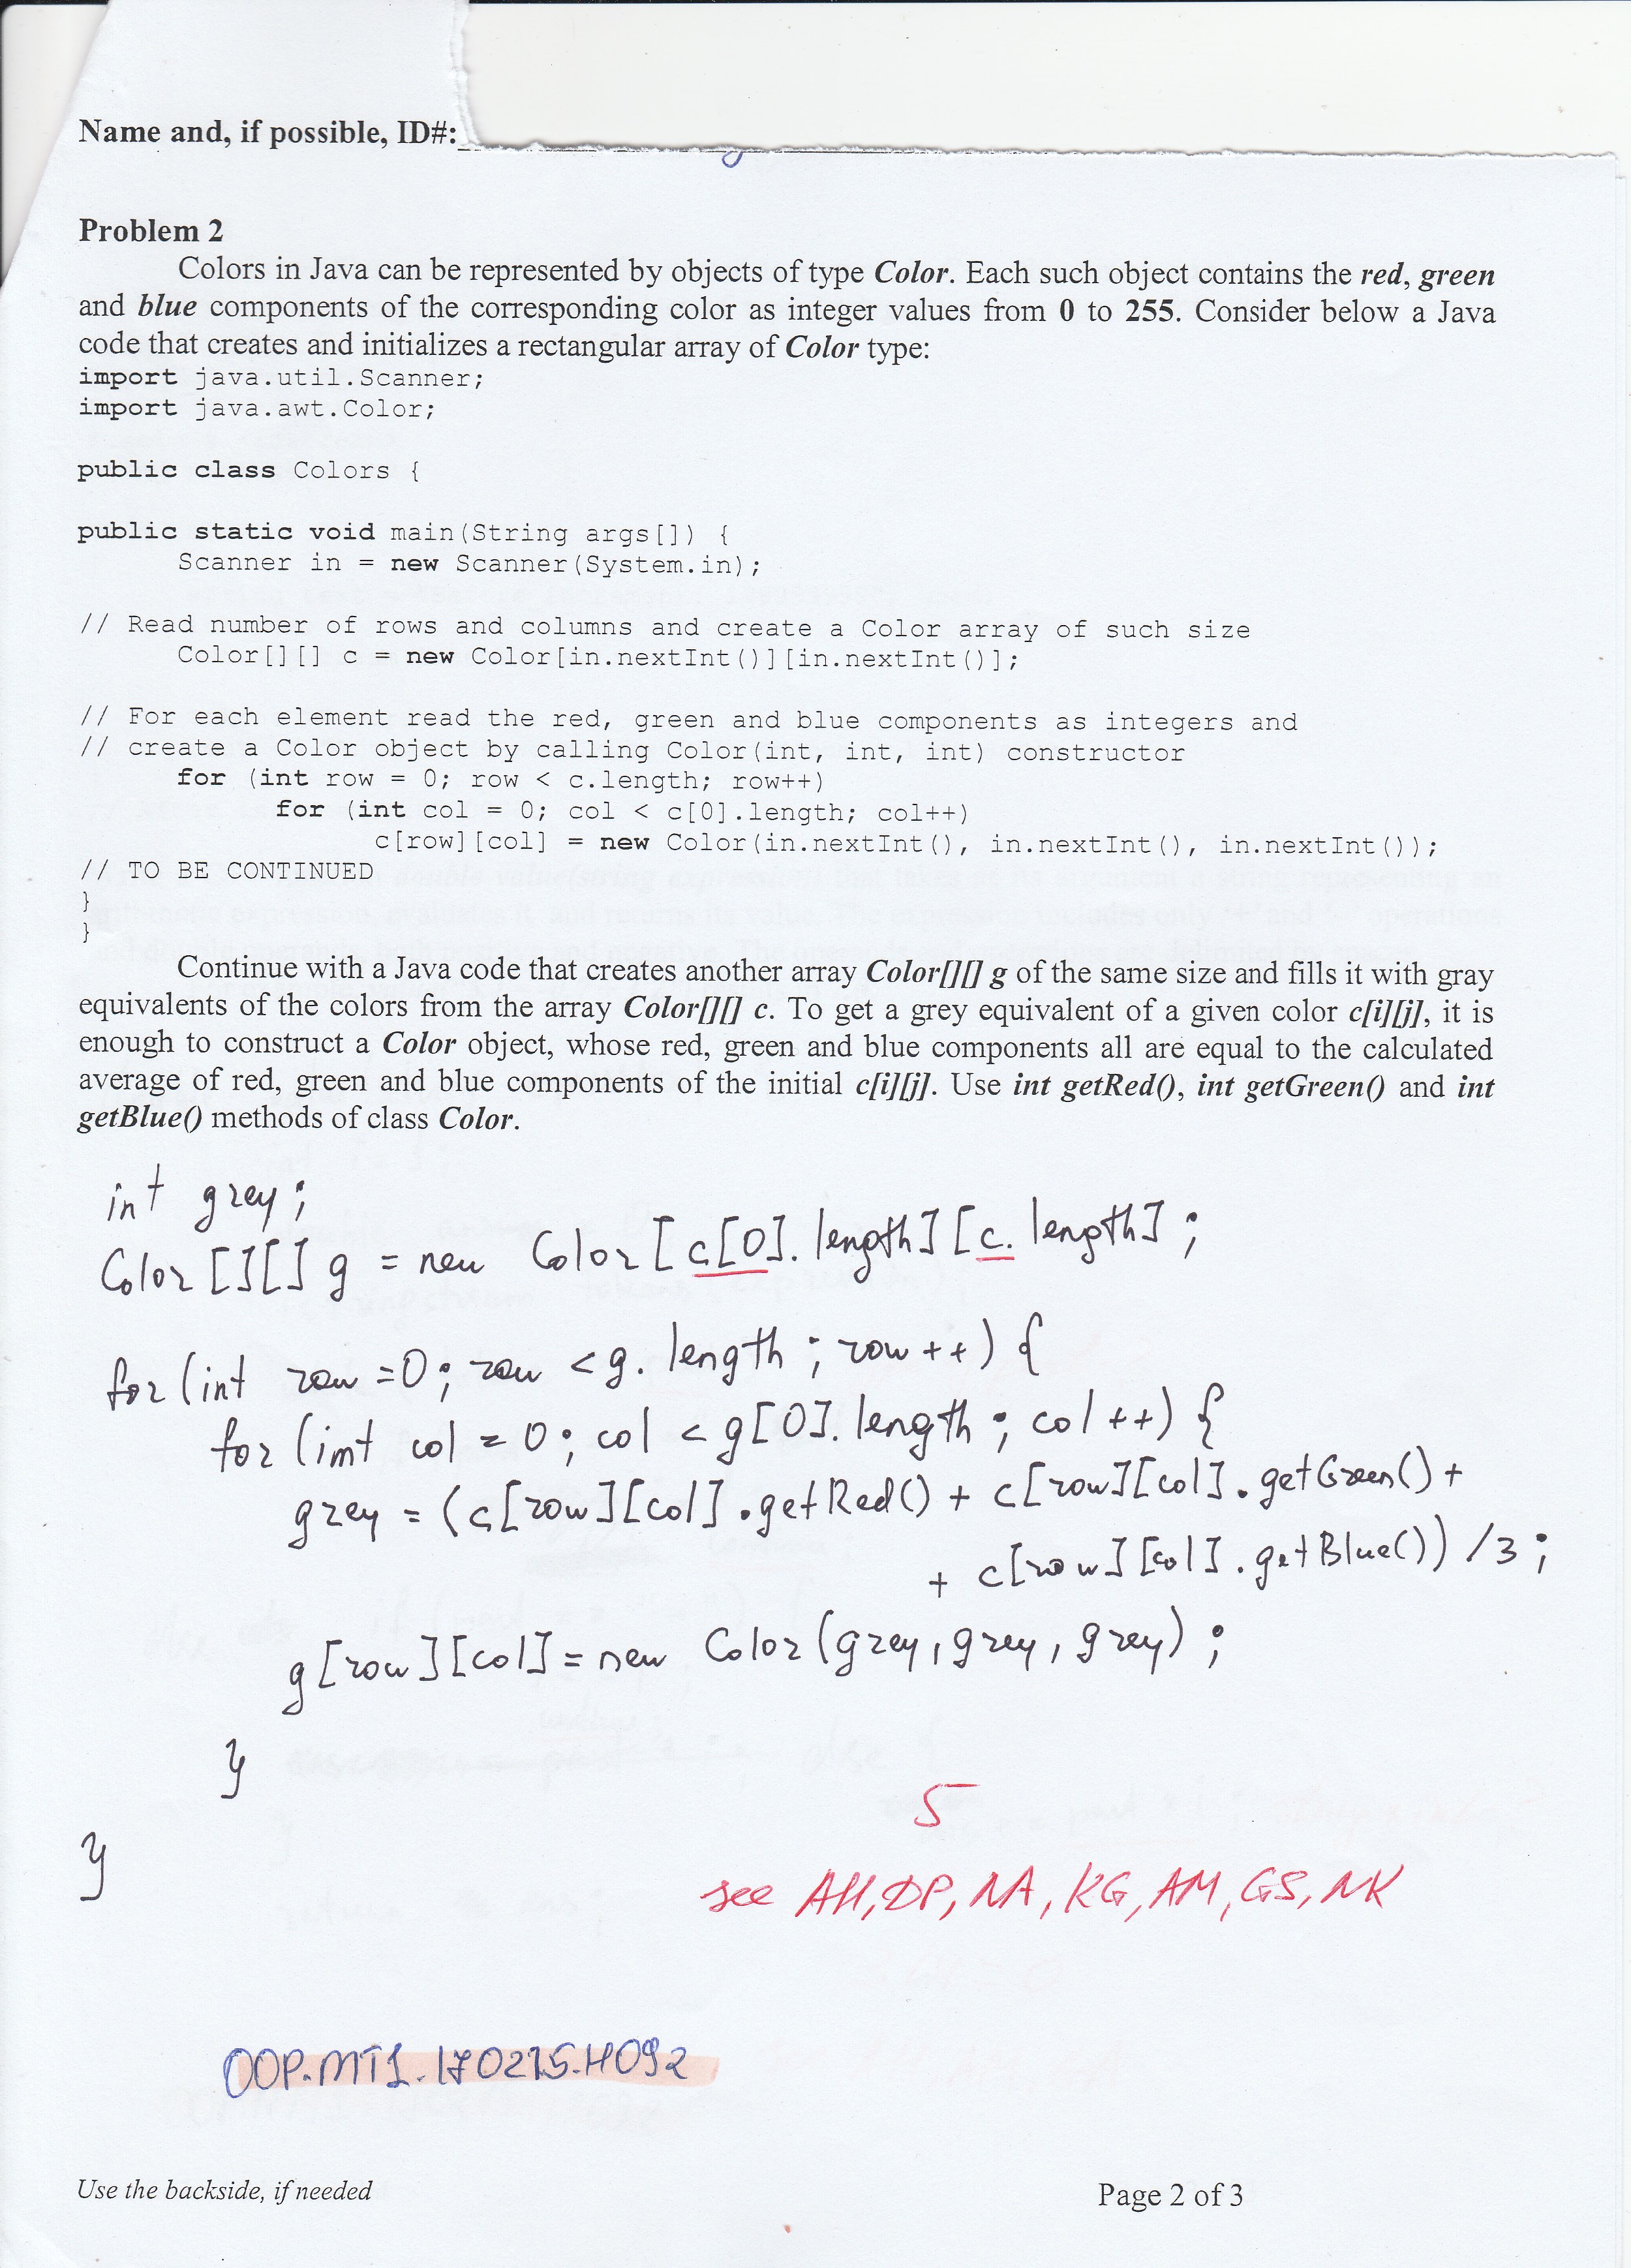 Name and, if possible, ID#:
Problem 2
Colors in Java can be represented by objects of type Color. Each such object contains the red, green
and blue components of the corresponding color as integer values from 0 to 255. Consider below a Java
code that creates and initializes a rectangular array of Color type:
import java.util.Scanner;
import java.awt.Color;
public class Colors {
public static void main(String args[]) {
Scanner in = new Scanner(System.in);
// Read number of rows and columns and create a Color array of such size
Color[][] c = new Color[in.nextInt()][in.nextInt()];
// For each element read the red, green and blue components as integers and
// create a Color object by calling Color(int, int, int) constructor
for (int row = 0; row < c.length; row++)
for (int col = 0; col < c[0].length; col++)
c[row][col] = new Color(in.nextInt(), in.nextInt(), in.nextInt());
// TO BE CONTINUED
}
}
Continue with a Java code that creates another array Color[][] g of the same size and fills it with gray
equivalents of the colors from the array Color[][] c. To get a grey equivalent of a given color c[i][j], it is
enough to construct a Color object, whose red, green and blue components all are equal to the calculated
average of red, green and blue components of the initial c[i][j]. Use int getRed(), int getGreen() and int
getBlue() methods of class Color.
int grey;
Color [][] g = new Color [c[0].length][c.length];
for (int row =0; row <g.length; row++) {
for (int col = 0; col < g[0].length; col++) {
grey = (c[row][col].getRed() + c[row][col].getGreen() +
+ c[row][col].getBlue()) /3;
g[row][col] = new Color (grey, grey, grey);
}
}
5
see AH, DP, NA, KG, AM, GS, NK
OOP.MT1.170215.H092
Use the backside, if needed
Page 2 of 3